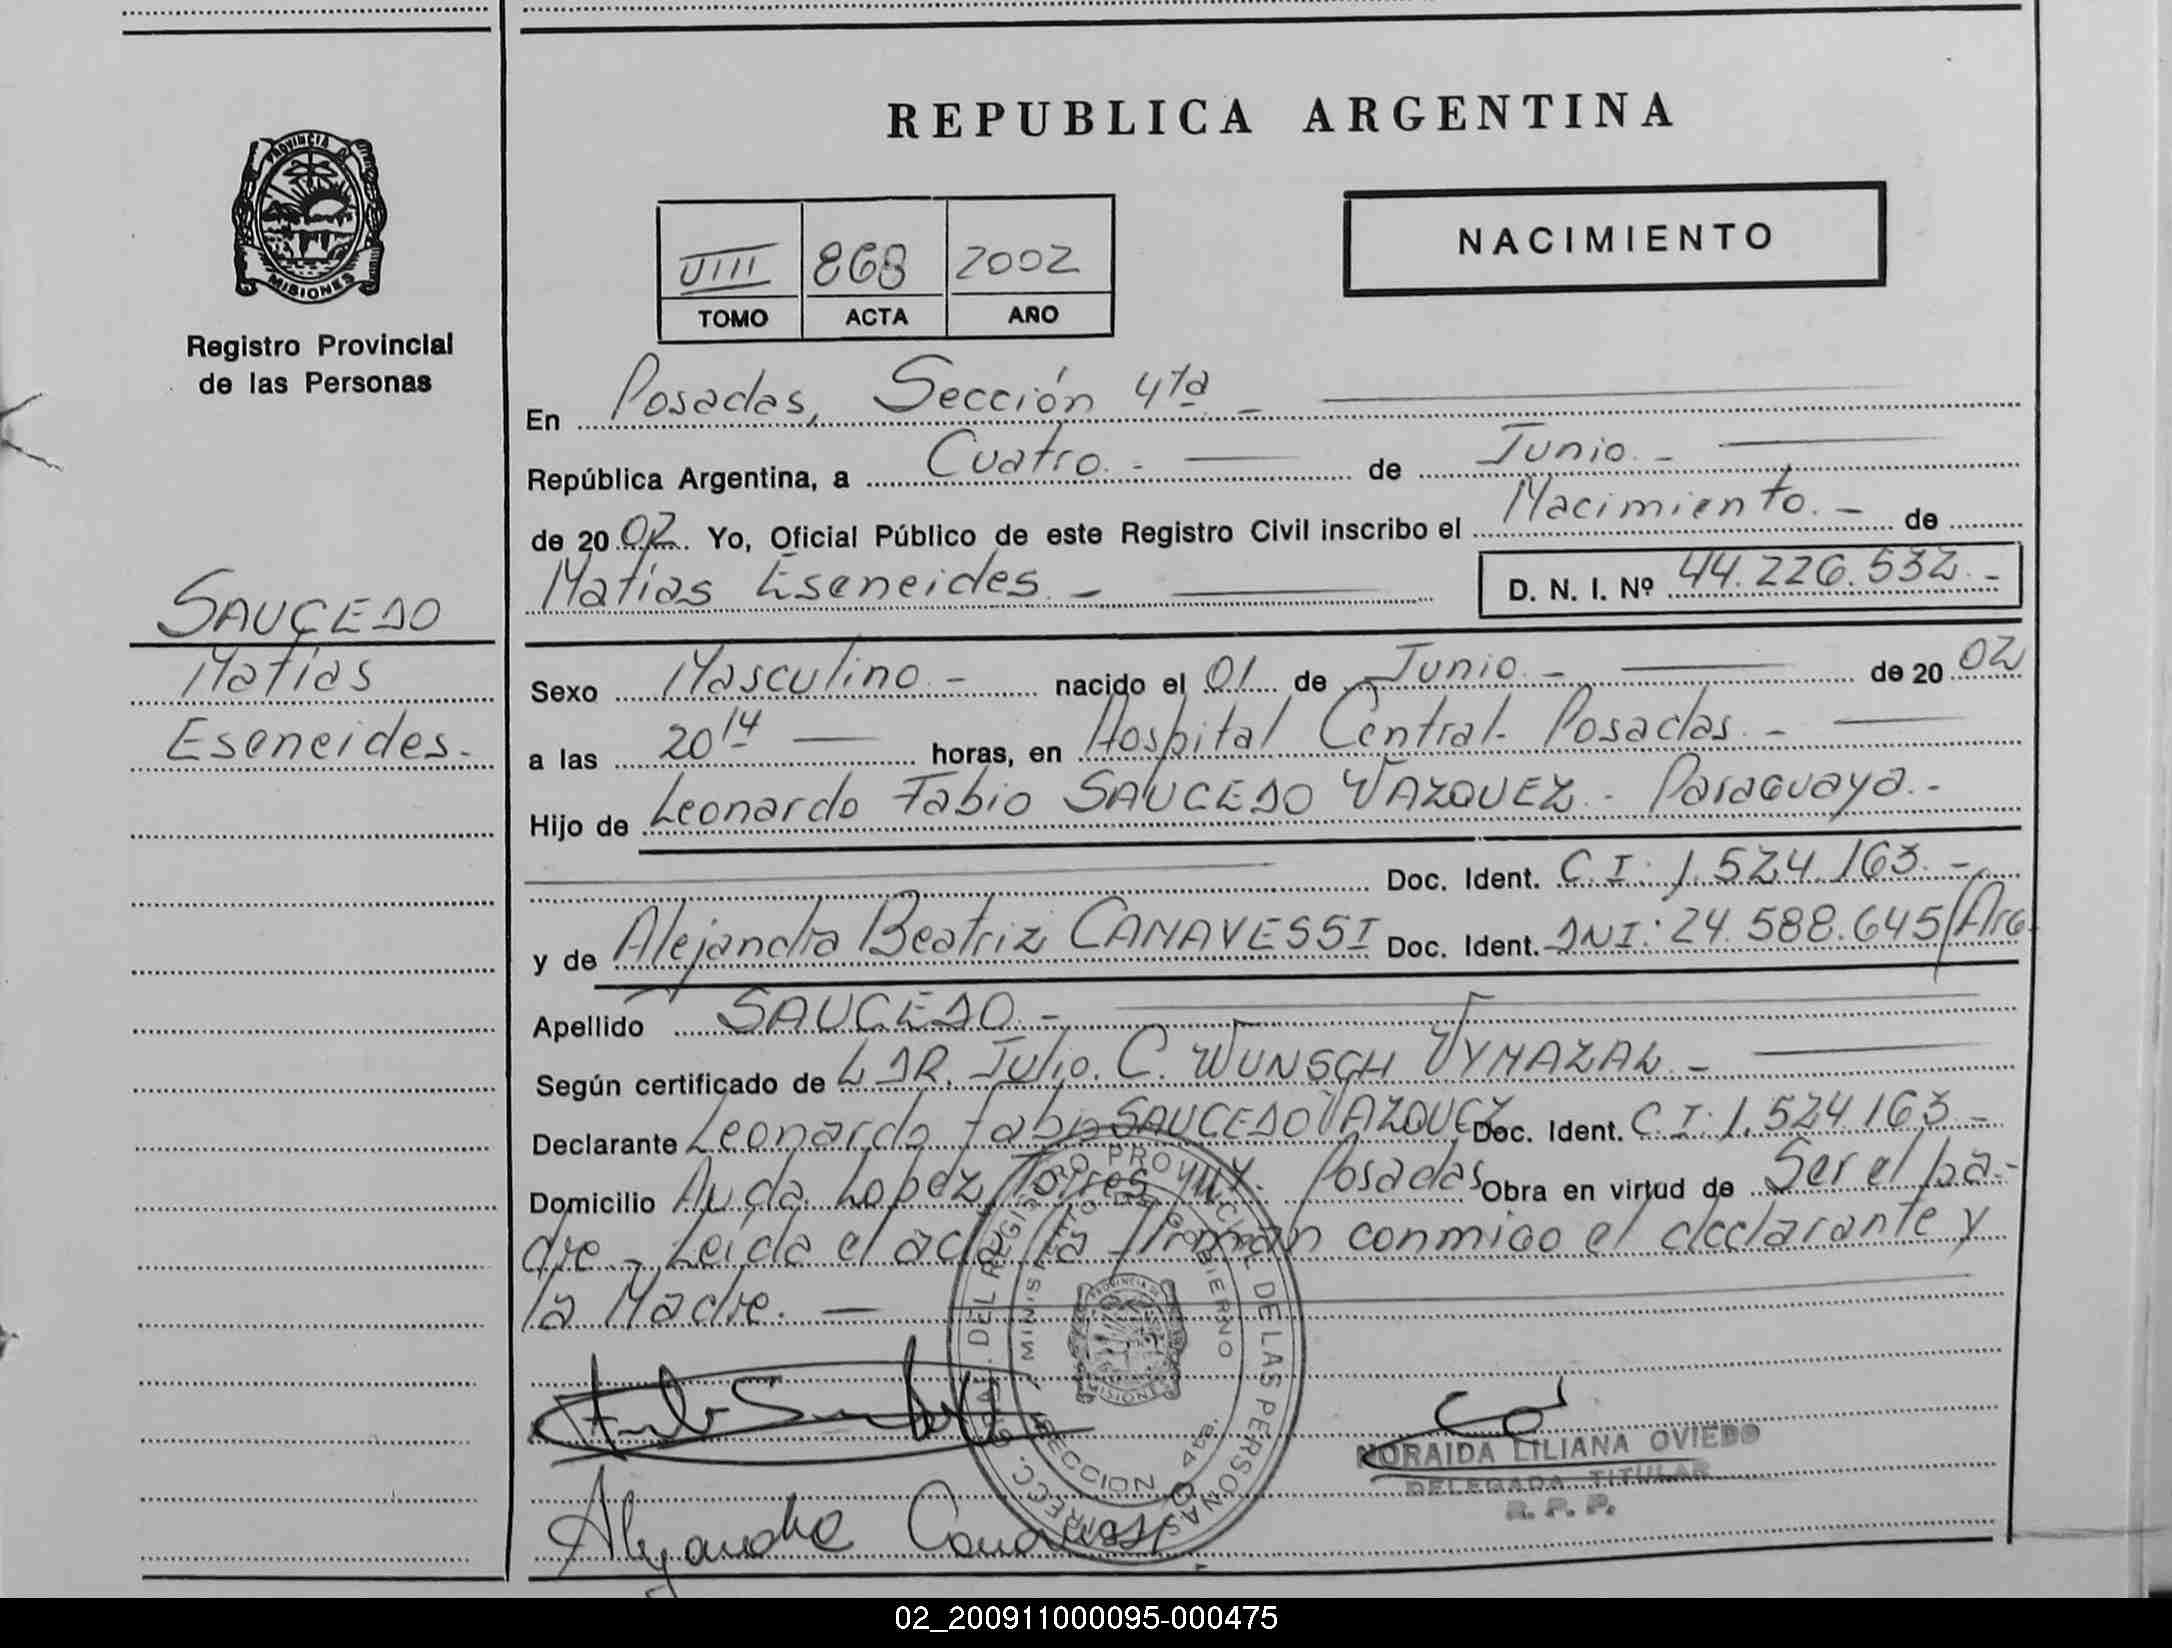 REPUBLICA ARGENTINA
PROVINCIA DE MISIONES
Registro Provincial
de las Personas
NACIMIENTO
VIII 868 2002
TOMO ACTA AÑO
En Posadas, Sección 4ta -
República Argentina, a Cuatro. - de Junio. -
de 2002. Yo, Oficial Público de este Registro Civil inscribo el Nacimiento. - de
Matías Eseneides. - D. N. I. Nº 44.226.532. -
SAUCEDO
Matías
Eseneides.-
Sexo Masculino - nacido el 01 de Junio. - de 20 02
a las 20 14 horas, en Hospital Central- Posadas. -
Hijo de Leonardo Fabio SAUCEDO VAZQUEZ. - Paraguaya. -
Doc. Ident. C.I: 1.524.163. -
y de Alejandra Beatriz CANAVESSI Doc. Ident. DNI: 24.588.645/Arg.
Apellido SAUCEDO. -
Según certificado de L DR. Julio. C. WUNSCH VYMAZAL -
Declarante Leonardo Fabio SAUCEDO VAZQUEZ Doc. Ident. C.I: 1.524.163 -
Domicilio Avda. Lopez Torres y Posadas Obra en virtud de Ser el pa-
dre - Leída el acta la firman conmigo el declarante y
la Madre. -
DIRECC. GRAL. DEL REGISTRO PROVINCIAL DE LAS PERSONAS
MINISTERIO DE GOBIERNO
SECCION 4ta.
Alejandra Canavessi
NORAIDA LILIANA OVIEDO
DELEGADA TITULAR
R. P. P.
02_200911000095-000475